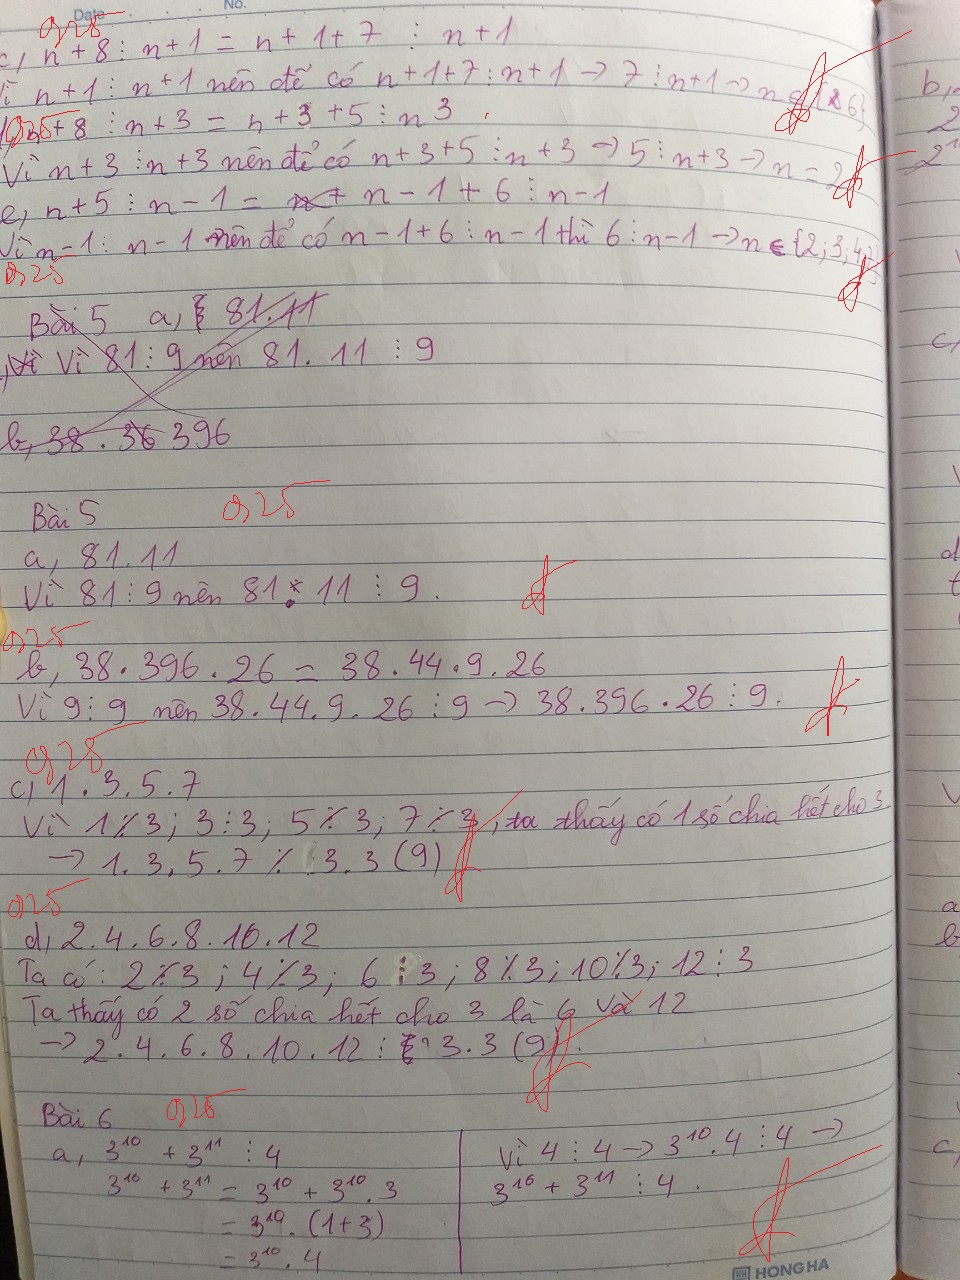 Date No.
0,25
c, n+8 ⋮ n+1 = n+1+7 ⋮ n+1
Vì n+1 ⋮ n+1 nên để có n+1+7 ⋮ n+1 → 7 ⋮ n+1 → n ∈ { 6}
0,25
n+8 ⋮ n+3 = n+3+5 ⋮ n 3
Vì n+3 ⋮ n+3 nên để có n+3+5 ⋮ n+3 → 5 ⋮ n+3 → n = 2
e, n+5 ⋮ n-1 = n-1+6 ⋮ n-1
Vì n-1 ⋮ n-1 nên để có n-1+6 ⋮ n-1 thì 6 ⋮ n-1 → n ∈ {2;3;4;7}
0,25
Bài 5 a, 81.11
Vì 81 ⋮ 9 nên 81.11 ⋮ 9
b, 38.36 396
Bài 5 0,25
a, 81.11
Vì 81 ⋮ 9 nên 81.11 ⋮ 9.
0,25
b, 38.396.26 = 38.44.9.26
Vì 9 ⋮ 9 nên 38.44.9.26 ⋮ 9 → 38.396.26 ⋮ 9.
0,25
c, 1.3.5.7
Vì 1 ⋮̸ 3; 3 ⋮ 3; 5 ⋮̸ 3; 7 ⋮̸ 3, ta thấy có 1 số chia hết cho 3
→ 1.3.5.7 ⋮̸ 3.3 (9)
0,25
d, 2.4.6.8.10.12
Ta có: 2 ⋮̸ 3; 4 ⋮̸ 3; 6 ⋮ 3; 8 ⋮̸ 3; 10 ⋮̸ 3; 12 ⋮ 3
Ta thấy có 2 số chia hết cho 3 là 6 và 12
→ 2.4.6.8.10.12 ⋮ 3.3 (9).
Bài 6 0,25
a, 3¹⁰ + 3¹¹ ⋮ 4
3¹⁰ + 3¹¹ = 3¹⁰ + 3¹⁰.3
= 3¹⁰.(1+3)
= 3¹⁰.4
Vì 4 ⋮ 4 → 3¹⁰.4 ⋮ 4 →
3¹⁰ + 3¹¹ ⋮ 4.
HONG HA